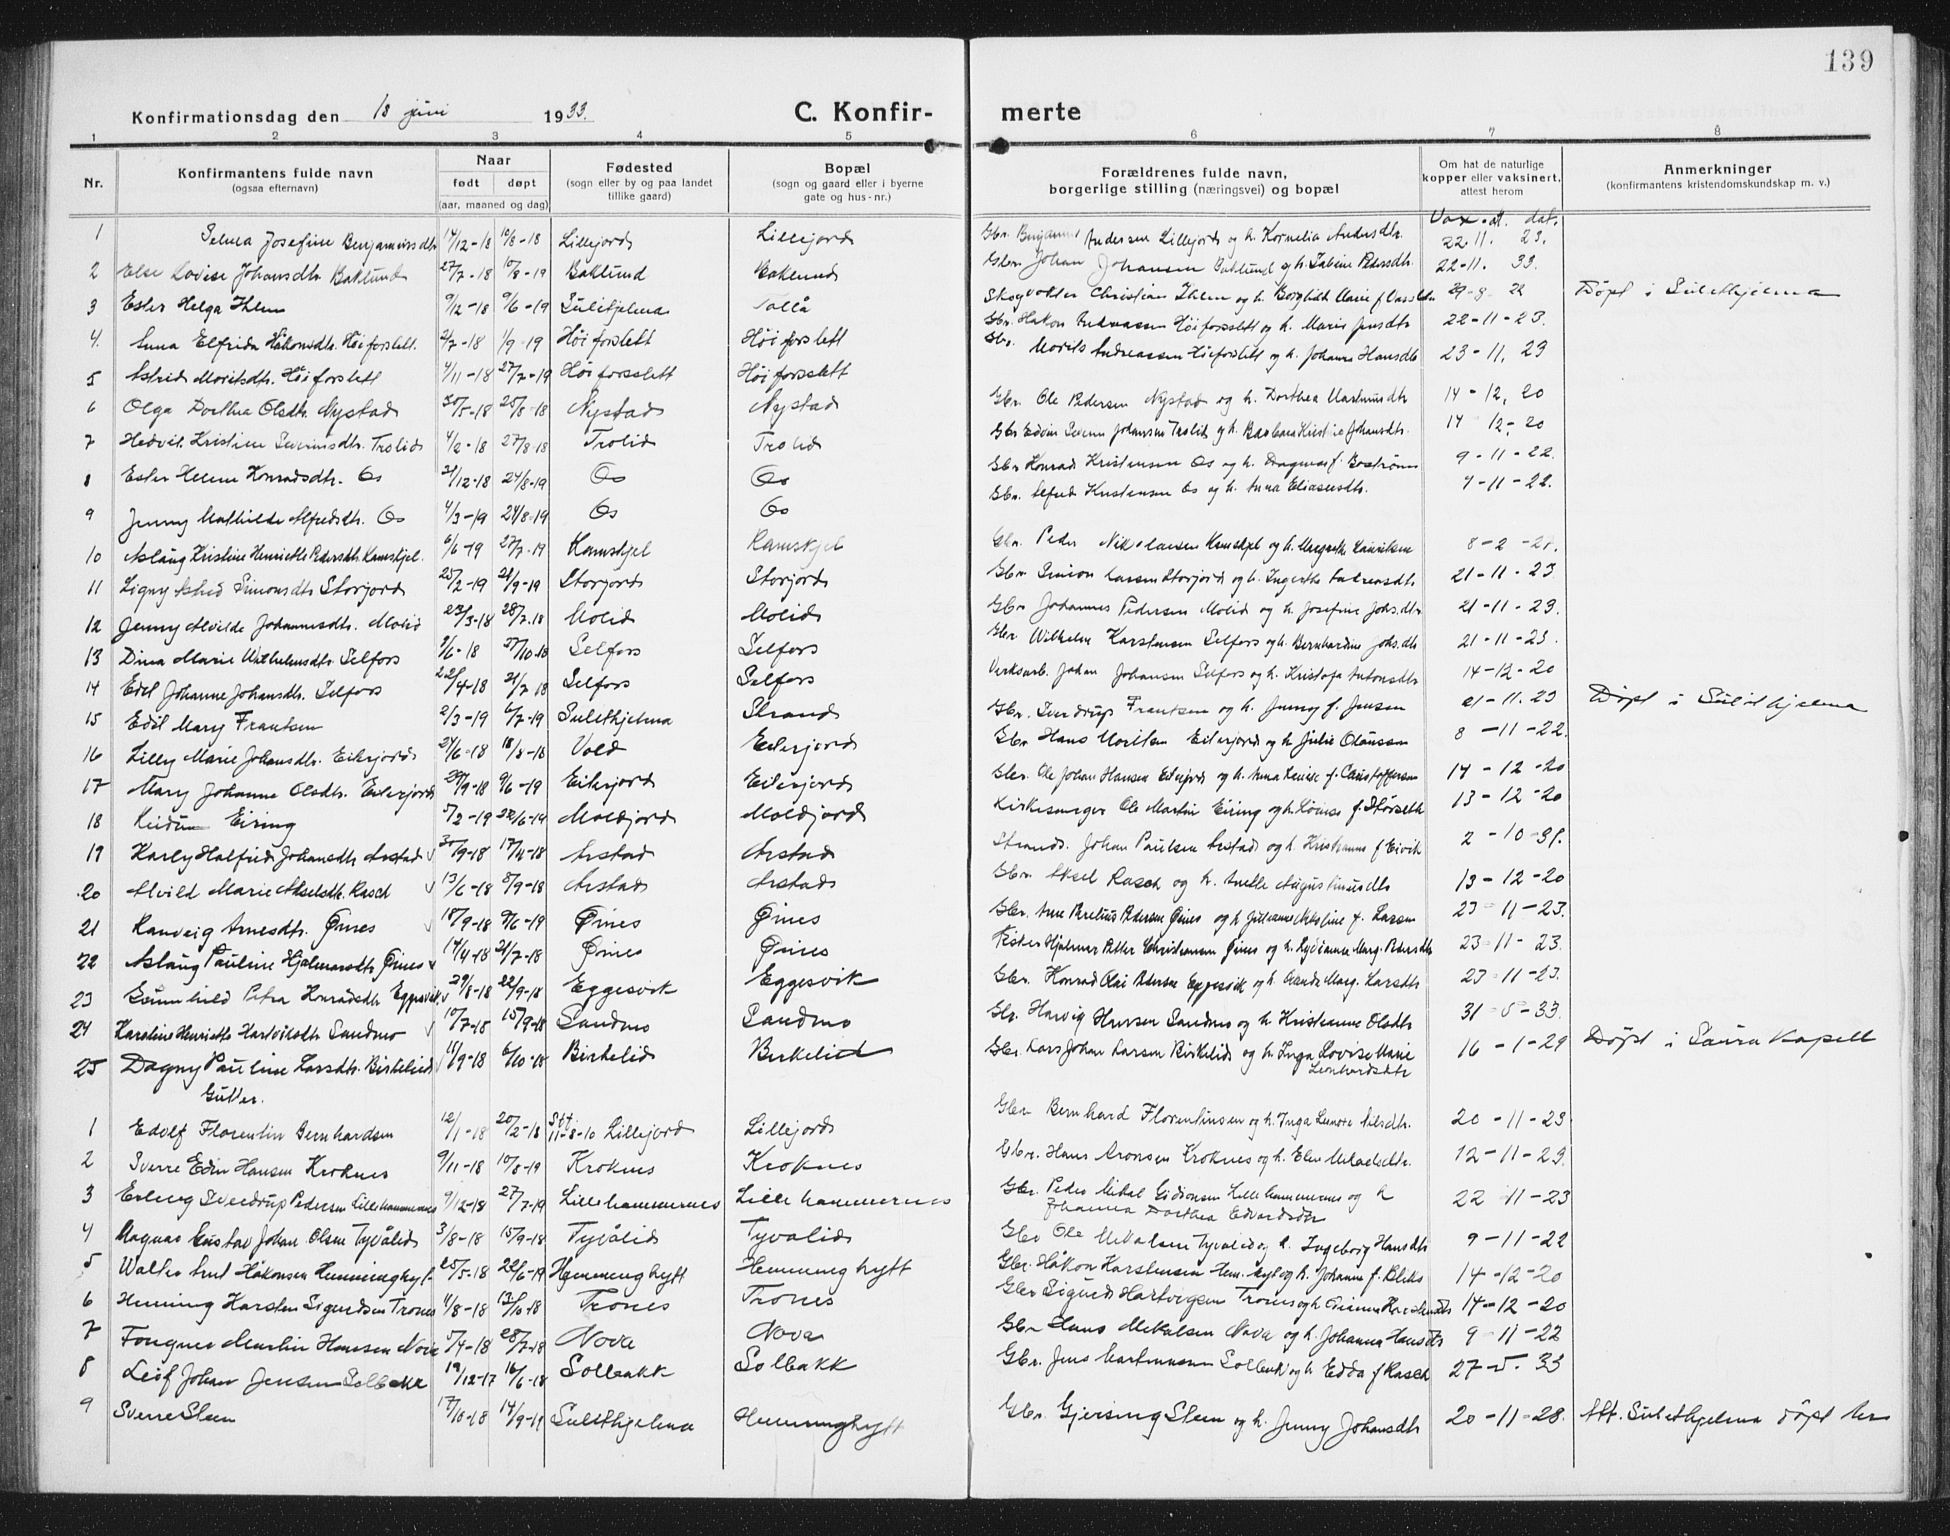 139
Konfirmationsdag den 18 juni 1933.
C. Konfirmerte
1 2 3 4 5 6 7 8
Nr. Konfirmantens fulde navn (ogsaa efternavn) Naar født døpt (aar, maaned og dag) Fødested (sogn eller by og paa landet tillike gaard) Bopæl (sogn og gaard eller i byerne gate og hus-nr.) Forældrenes fulde navn, borgerlige stilling (næringsvei) og bopæl Om hat de naturlige kopper eller vaksinert, attest herom Anmerkninger (konfirmantens kristendomskundskap m. v.)
1 Selma Josefine Benjaminsdtr 14/12-18 10/8-18 Lillejord Lillejord Gbr. Andersen Lillejord og h. Kornelia Andersdtr. 22.11. 23.
2 Else Lovise Johansdtr Baklund 27/7-18 10/8-19 Baklund Baklund Gbr. Johan Johansen Baklund og h. Pedersdtr. 22-11. 33.
3 Ester Helga Ihlen 9/12-18 9/6-19 Sulitjelma Skogvokter Christian Ihlen og h. Borghild Marie f. 29-8 22 Døpt i Sulithjelma
4. Anna Elfrida Håkonsdtr. Høiforslett 2/7-18 1/9-19 Høiforslett Høiforslett Gbr. Håkon Andreassen Høiforslett og h. Marie Jensdtr 22-11-23.
5 Astrid Moritsdtr. Høiforslett 4/11-18 27/7-19 Høiforsslett Høiforsslett Gbr. Morits Andreassen Høiforslett og h. Johanna Hansdtr 23-11, 23
6 Olga Dorthea Olsdtr Nystad 30/5-18 25/8-18 Nystad Nystad Gbr. Ole Pedersen Nystad og h. Dorthea 14-12, 20
7 Hedvik Kristine Severinsdtr. Trolid 4/2-18 27/8-18 Trolid Trolid Gbr Edvin Severin Johansen Trolid og h. Barbara Kristine Johansdtr. 14 12-20
8 Ester Helene Konradsdtr. Os 21/12-18 24/8-19 Os Os Gbr Konrad Kristensen Os og h. Dagmar f. Bostrøm 9-11-22.
9 Jenny Mathilde Alfredsdtr. Os 4/3-19 24/8-19 Os Os Gbr. Alfred Kristensen Os og h. Anna Eliasensdtr. 4-11-22.
10 Aslaug Kristine Henriette Pedersdtr. Kamskjel. 6/6-19 27/7-19 Kamskjel Kamskjel Gbr. Peder Nikolaisen Kamskjel og h. Margrethe 8-2-28.
11 Signy Astrid Simonsdtr Storjord 25/2-19 21/9-19 Storjord Storjord Gbr. Simon Larsen Storjord og h. Ingertha 21-11-23
12 Jenny Alvilde Johannesdtr. Molid 23/3-18 28/7-18 Molid Molid Gbr Johannes Pedersen Molid og h. Josefine Johs.dtr 21-11-23.
13 Dina Marie Wilhelmsdtr Selfors 9/6-18 27/10-18 Selfors Selfors Gbr. Wilhelm Karstensen Selfors og h. Bernhardine Johs.dtr 21-11-23.
14 Edel Johanne Johansdtr. Selfors 22/4-18 21/7 18 Selfors Selfors Verksarb. Johan Johansen Selfors og h. Kristofa Antonsdtr 14-12-20
15 Edil Mary Frantsen 2/3-19 6/7-19 Sulithjelma Strand Gbr. Sverdrup Frantsen og h. Jenny f. Jensen 21-11.23 Døpt i Sulithjelma
16 Lilly Marie Johansdtr. Eiterjord 24/6-18 18/8-18 Vold Eiterjord Gbr. Hans Moritsen Eiterjord og h. Julie Olaussen 8-11-22.
17 Mary Johanne Olsdtr. Eiterjord 29/9-18 9/6-19 Eiterjord Eiterjord Gbr. Ole Johan Hansen Eiterjord og h. Anna Lovise f. Christoffersen 14-12-20
18 Eiring 5/2-19 22/6-19 Moldjord Moldjord Kirkesanger Ole Martin Eiring og h. Lovise f. Størseth 13-12-20
19 Karly Halfrid Johansdtr Arstad 30/9-18 17/4-18 Arstad Arstad Strands. Johan Paulsen Arstad og h. Kristianna f Eivik 2-10-31.
20 Alvild Marie Akselsdtr. Rasch 13/6-18 8/9-18 Arstad Arstad Gbr. Aksel Rasch og h. Anette Augustinusdtr 13-12-20
21 Ranveig Arnesdtr. Øines 18/9-18 9/6-19 Øines Øines Gbr. Arne Perelius Pedersen Øines og h. Julianne Nikoline f. Larsen 23-11-23.
22 Aslaug Pauline Hjalmarsdtr Øines 14/4-18 21/7-18 Øines Øines Fisker Hjalmar Petter Christiansen Øines og h. Lydianna Marg. Pedersdtr 23-11-23.
23 Gunnhild Petra Konradsdtr Eggesvik 29/8-18 22/9-18 Eggesvik Eggesvik Gbr. Konrad Olai Pedersen Eggesvik og h. Marg. Larsdtr 23-11-23.
24 Karoline Henriette Hartviksdtr Sandmo 10/7-18 15/9-18 Sandmo Sandmo Gbr. Harvig Hansen Sandmo og h. Kristianna Olsdtr 31-5-33.
25 Dagny Pauline Larsdtr. Birkelid 11/9-18 6/10-18 Birkelid Birkelid Gbr. Lars Johan Larsen Birkelid og h. Inga Lovise Marie Leonhardsdtr 16-1-29 Døpt i Saura Kapell
Gutter.
1 Edolf Florentin Bernhardsen 12/1-18 20/2-18 Lillejord Lillejord Gbr Bernhard Florentinsen og h. Inga Lenore Nilsdtr. 20-11-23
2 Sverre Edin Hansen Kroknes 9/11-18 10/8-19 Kroknes Kroknes Gbr. Hans Aronsen Kroknes og h. Elen Mikaelsdtr. 12-11-23.
3 Erling Sverdrup Pedersen Lillehammernes 9/12-18 27/7-19 Lillehammernes Lillehammernes Gbr. Peder Mikal Gidionsen Lillehammernes og h Johanna Dorthea Edvardsdtr 22 11-23
4 Magnus Gustav Johan Olsen Tyvålid 3/8-18 15/9-18 Tyvålid Tyvalid Gbr Ole Mikalsen Tyvalid og h. Ingeborg Hansdtr 9-11-22
5 Walter Håkonsen Hemminghytt 25/5-18 22/6-19 Hemminghytt Hemminghytt Gbr. Håkon Karstensen Hem.hyt og h. Johanna f. Bleks 14-12-20
6 Henning Karsten Sigurdsen Trones 4/8-18 13/10-18 Trones Trones Gbr Sigurd Hartvigsen Trones og h. 14-12-20
7 Martin Hansen Nova 5/4-18 28/7-18 Nova Nova Gbr Hans Mikalsen Nova og h. Johanna Hansdtr 9-11-22
8 Leif Johan Jensen Solbakk 19/12-17 16/6-18 Solbakk Solbakk Gbr. Jens Solbakk og h. Edda f Rasch 27-5. 33
9 Sverre Steen 17/10-18 14/9-19 Sulithjelma Hemminghytt Gbr. Gjersing Steen og h. Jenny Johansdtr 20-11-28. Att. Sulithjelma døpt her